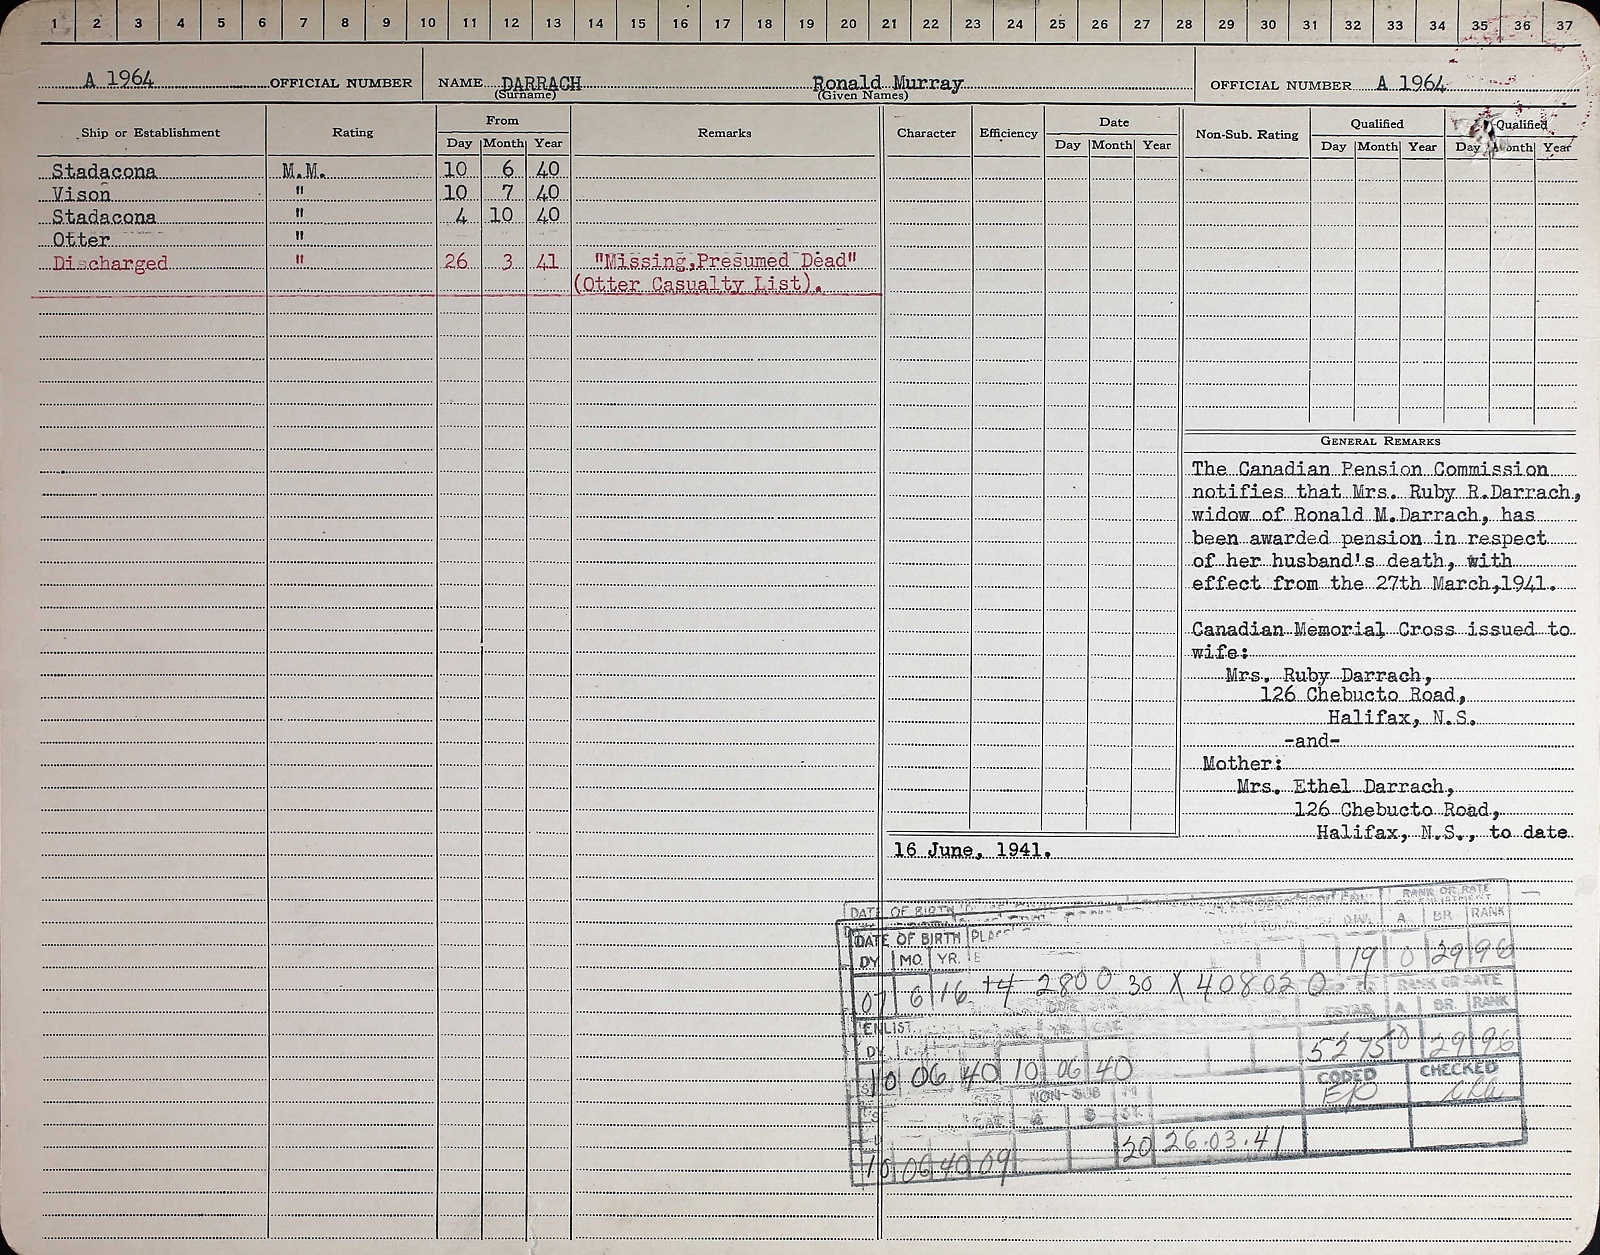 1 2 3 4 5 6 7 8 9 10 11 12 13 14 15 16 17 18 19 20 21 22 23 24 25 26 27 28 29 30 31 32 33 34 35 36 37
A 1964 OFFICIAL NUMBER NAME DARRACH Ronald Murray OFFICIAL NUMBER A 1964
(Surname) (Given Names)
Ship or Establishment Rating From Remarks Character Efficiency Date Non-Sub. Rating Qualified Qualified
Day Month Year Day Month Year Day Month Year Day Month Year
Stadacona M.M. 10 6 40
Vison " 10 7 40
Stadacona " 4 10 40
Otter "
Discharged " 26 3 41 "Missing,Presumed Dead"
(Otter Casualty List).
GENERAL REMARKS
The Canadian Pension Commission
notifies that Mrs. Ruby R.Darrach,
widow of Ronald M.Darrach, has
been awarded pension in respect
of her husband's death, with
effect from the 27th March,1941.
Canadian Memorial Cross issued to
wife:
Mrs. Ruby Darrach,
126 Chebucto Road,
Halifax, N.S.
-and-
Mother:
Mrs. Ethel Darrach,
126 Chebucto Road,
Halifax, N.S., to date
16 June, 1941.
DATE OF BIRTH RANK OR RATE
A BR. RANK
DATE OF BIRTH
DY MO. YR. 19 0 29 96
07 6 16 2800 30 X 408020 RANK OR RATE
A BR. RANK
ENLIST.
DY 5275 0 29 96
10 06 40 10 06 40 CODED CHECKED
NON-SUB
A
20 26.03.41
10 06 40 09